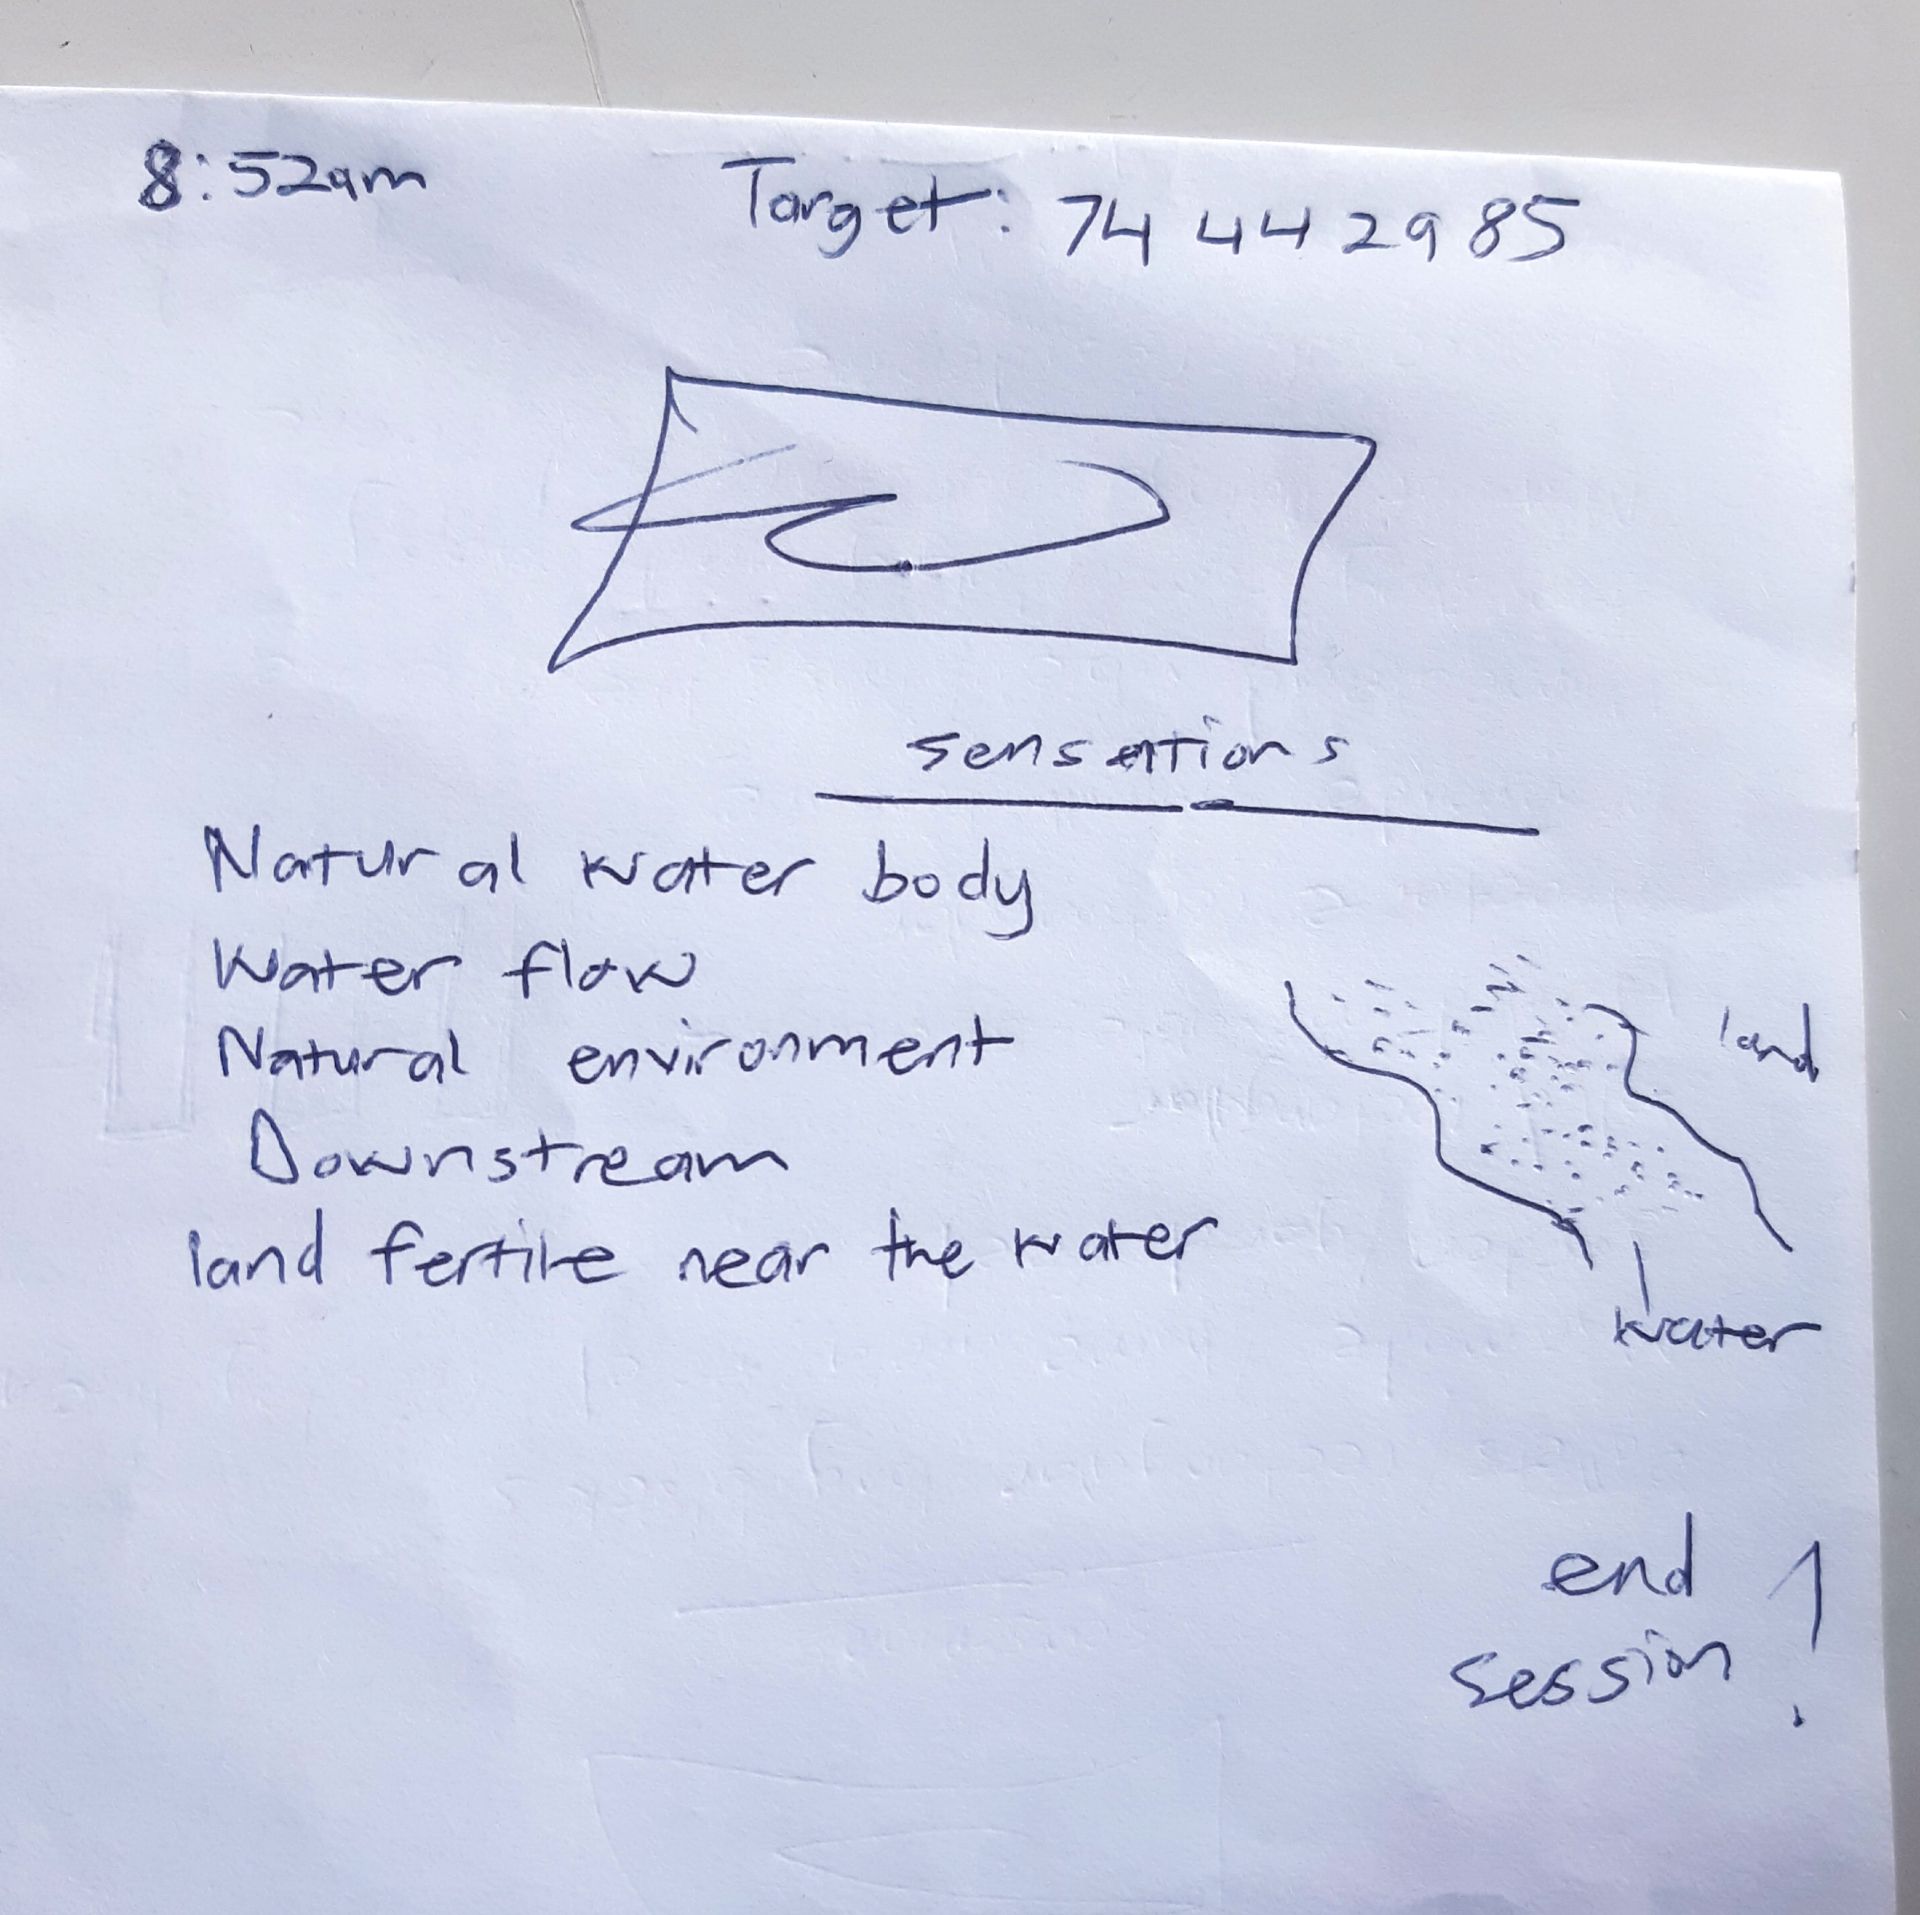 8:52am
Target: 74 44 29 85
sensations
Natural water body
Water flow
Natural environment
Downstream
land fertile near the water
land
water
end
session !